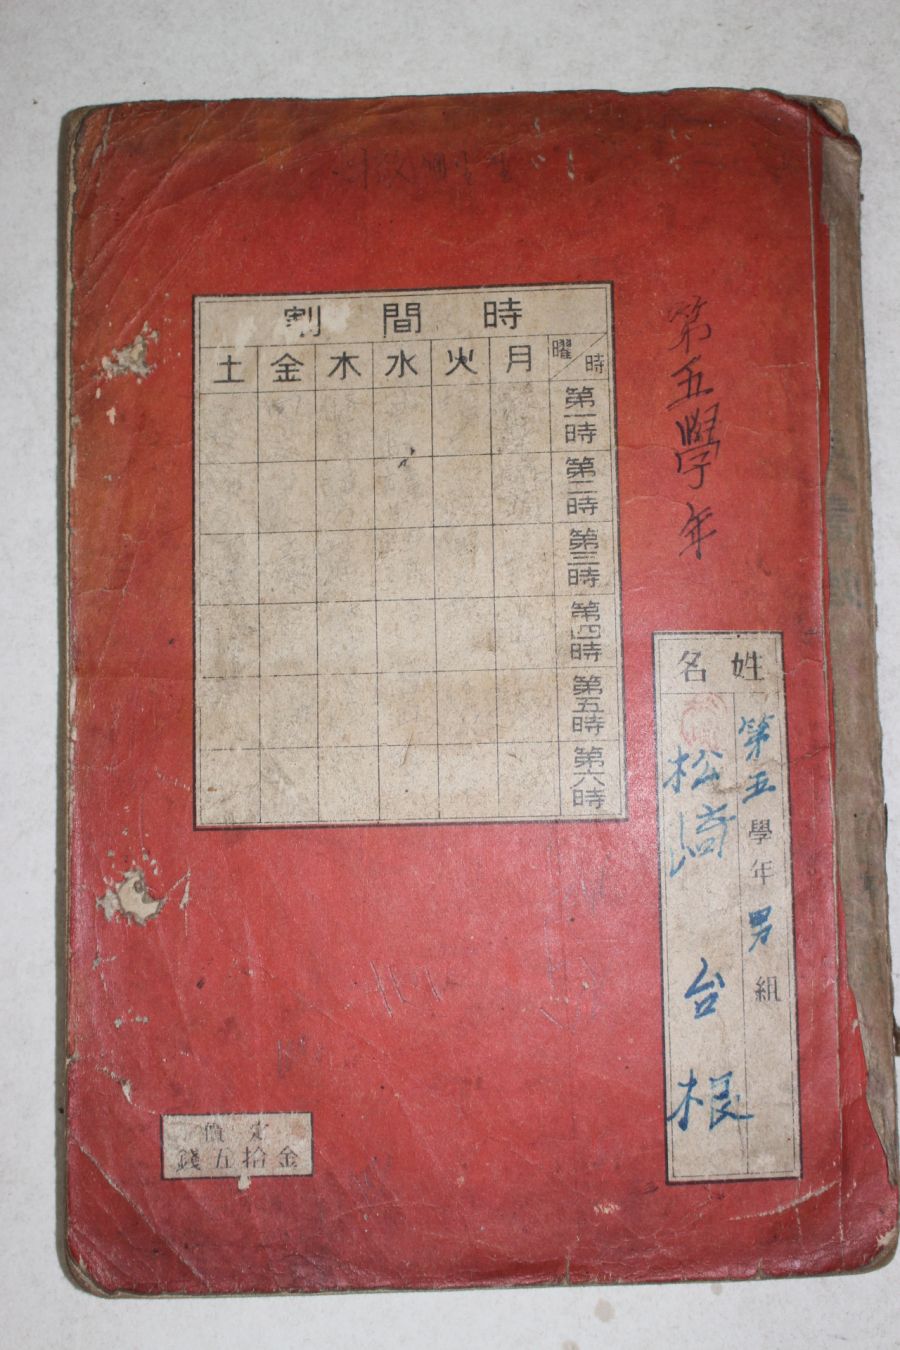 第五學年
時間割
曜 時
月 火 水 木 金 土
第一時
第二時
第三時
第四時
第五時
第六時
姓名
第五學年男組
松濤台根
定價
金拾五錢